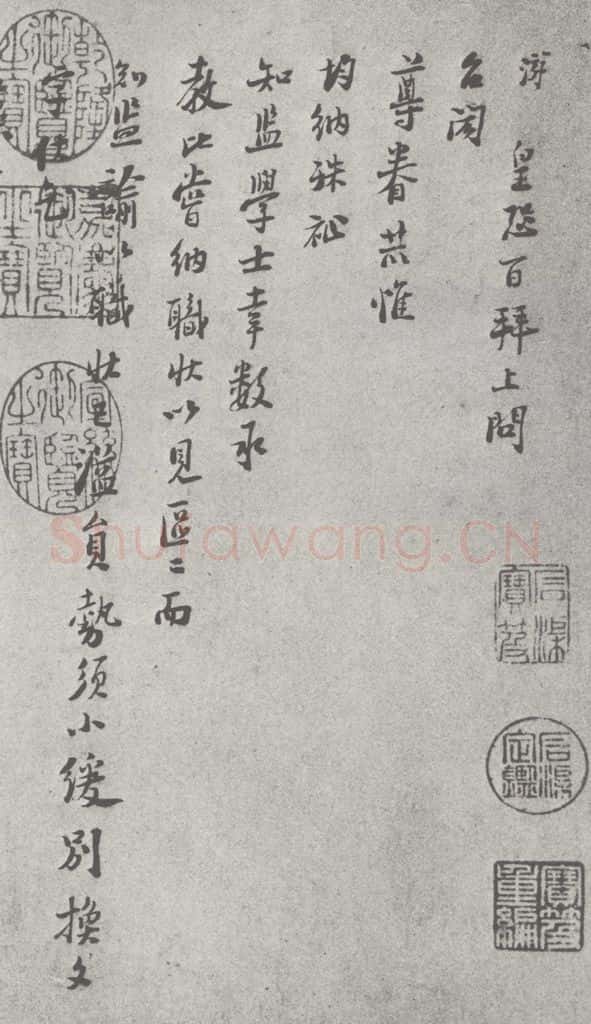 游 皇恐百拜上問
台閤
尊眷共惟
均納殊祉
知監學士幸數承
教比嘗納職狀以見區〻而
知監諭以職狀溢員勢須小緩別換文
字
石渠寶笈
石渠定鑑
寶笈重編
乾隆御覽之寶
嘉慶御覽之寶
宣統御覽之寶
Shufawang.CN